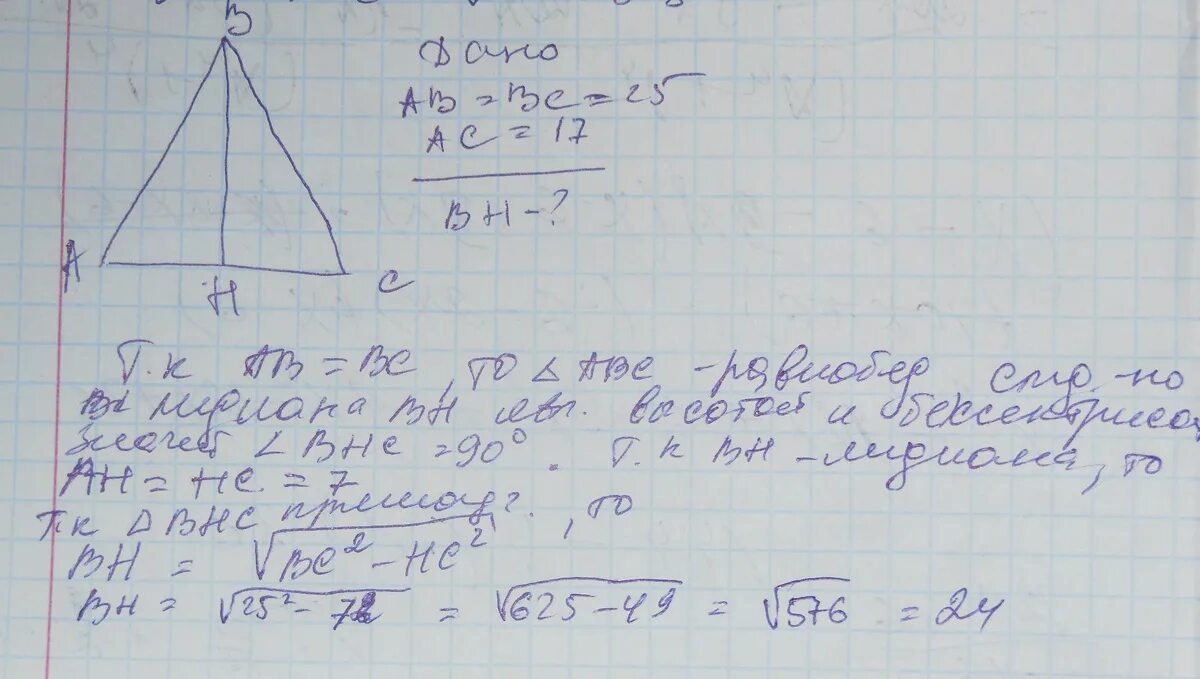 B
Дано
AB = BC = 25
AC = 17
BH - ?
A
H
C
Т.к AB = BC, то △ ABC - равнобед след-но
медиана BH явл. высотой и бессектриса,
значит ∠ BHC = 90°. Т.к BH - медиана, то
AH = HC = 7
Т.к △ BHC прямоуг., то
BH = √BC² - HC²
BH = √25² - 7² = √625 - 49 = √576 = 24